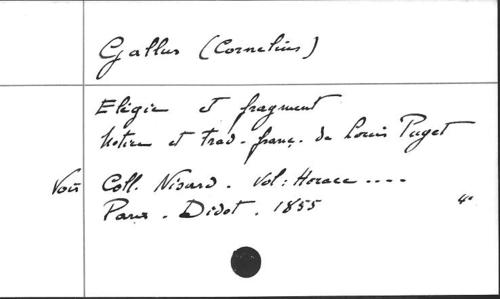 Gallus (Cornelius)
Elégie et fragment
Notice et trad. franç. de Louis Puget
Voir Coll. Nisard. Vol: Horace ....
Paris. Didot. 1855 4°